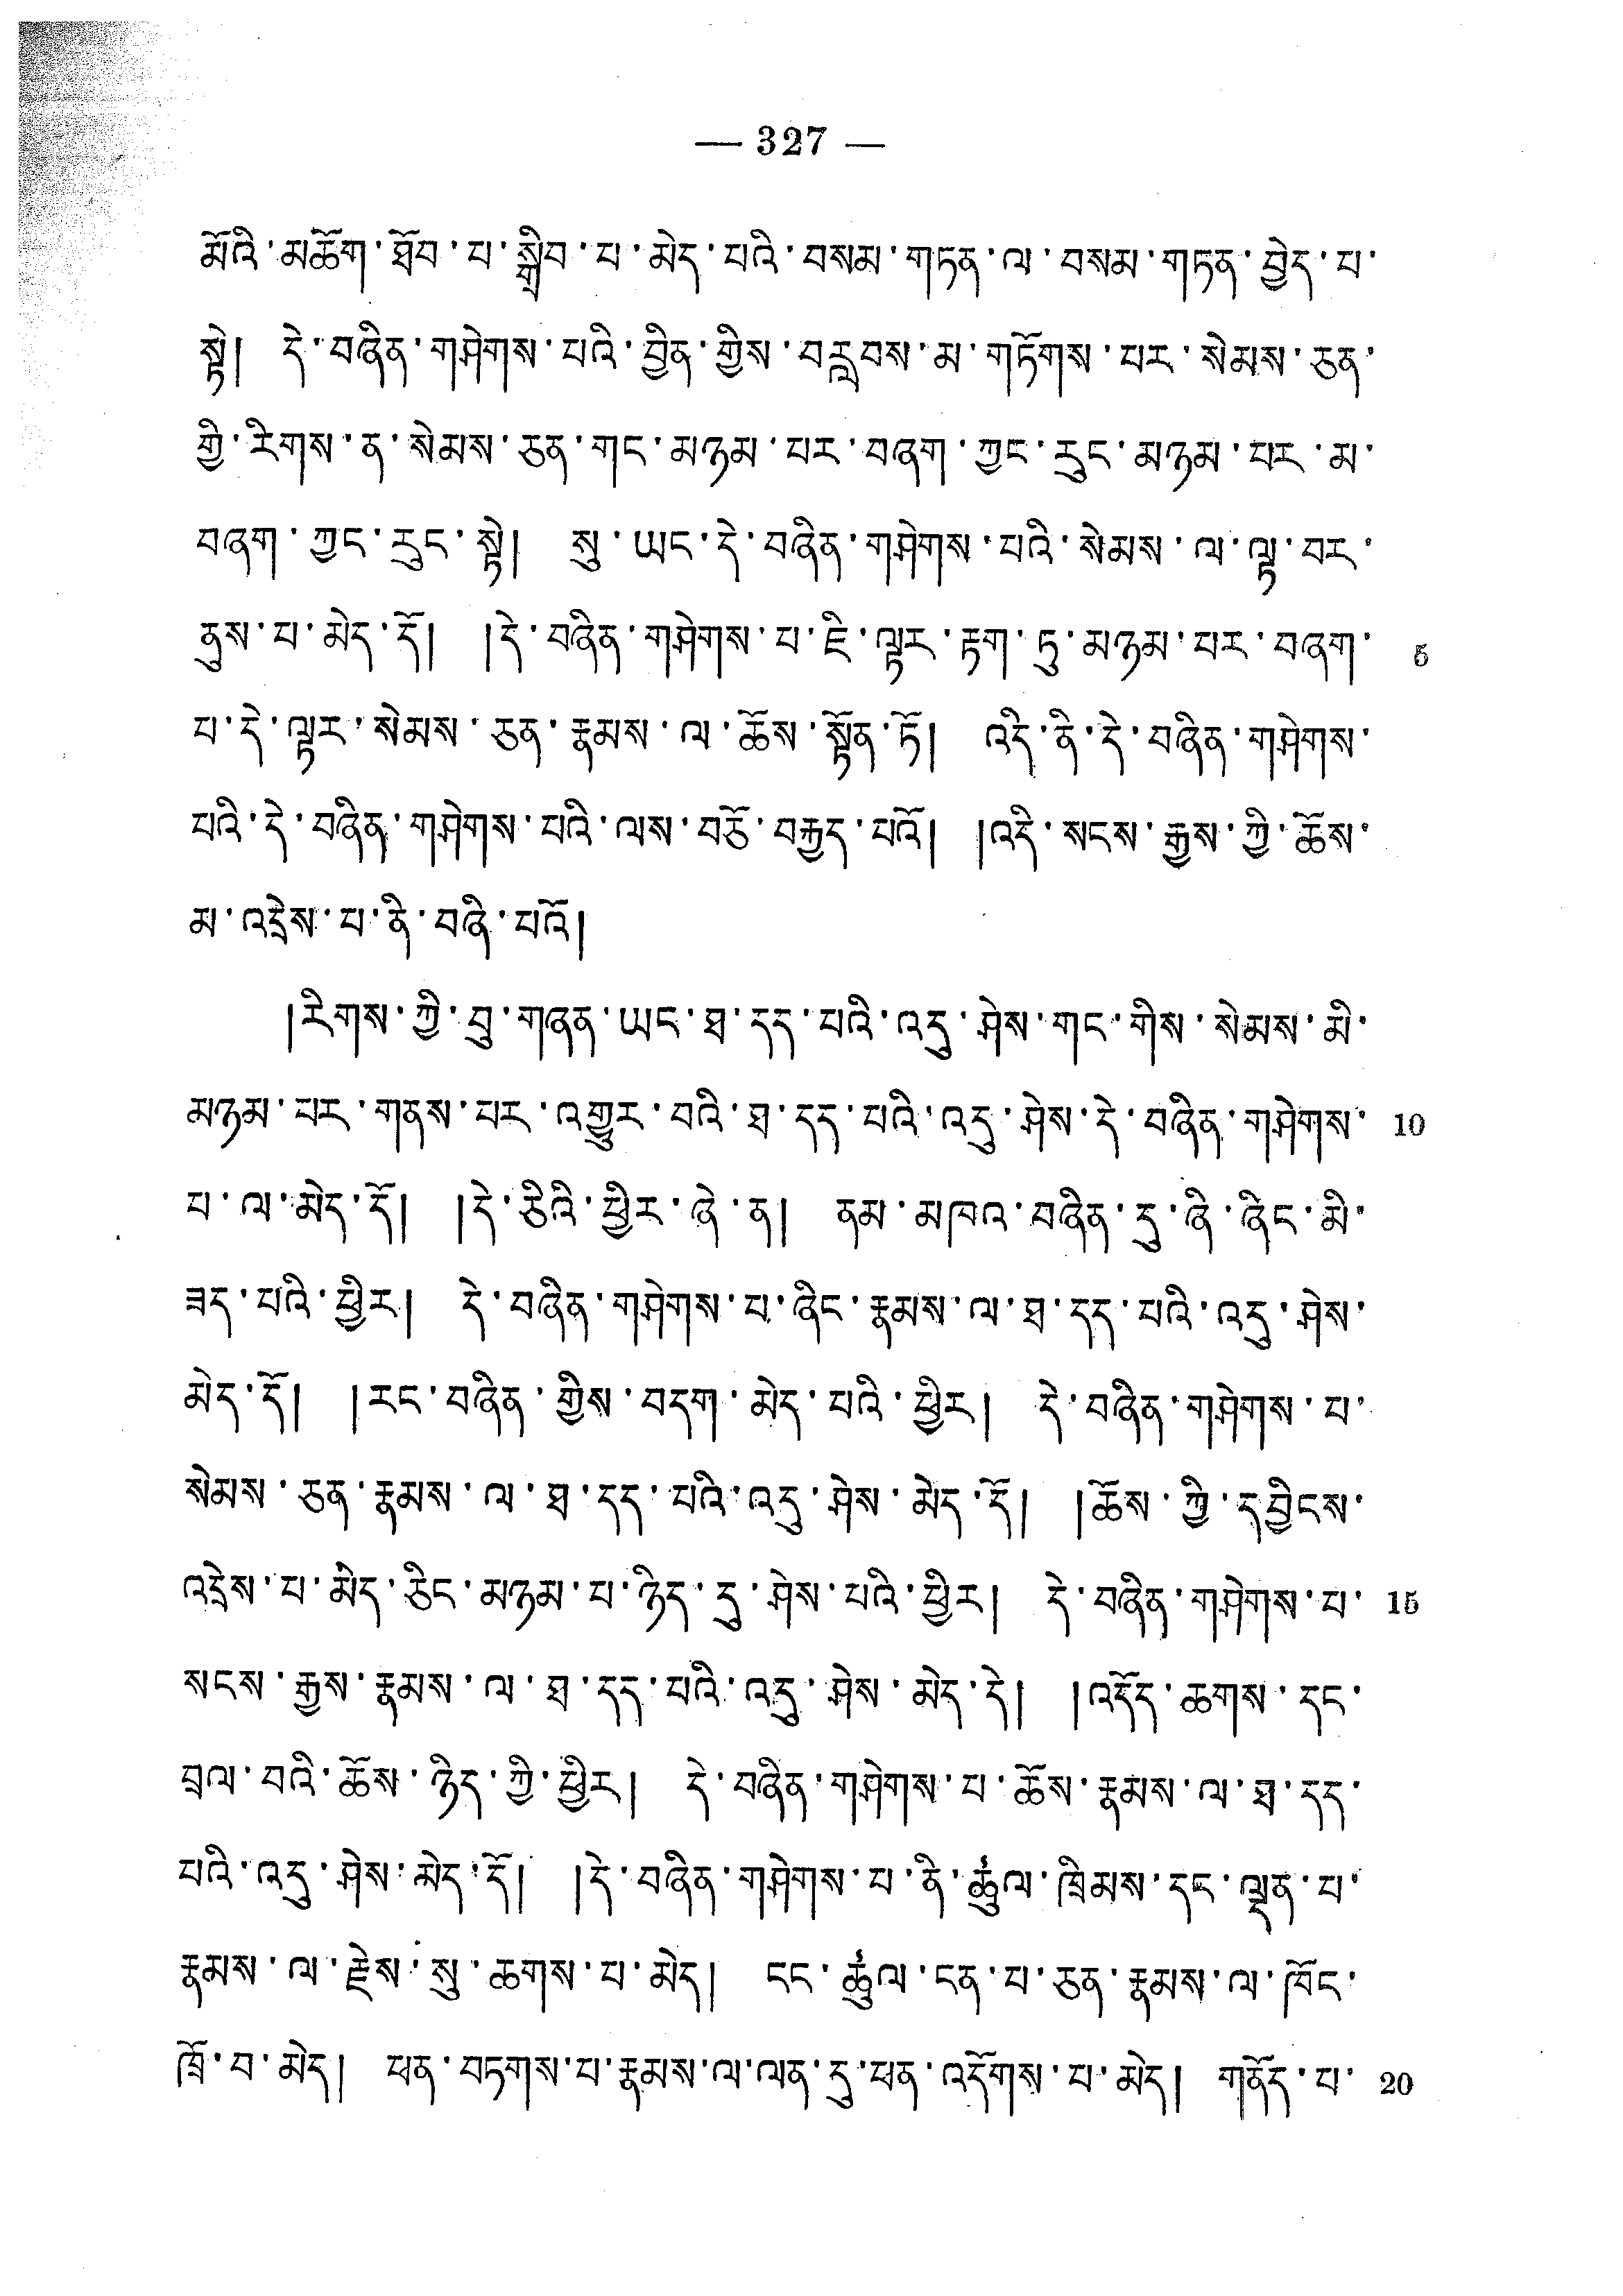 — 327 —
མོའི་མཆོག་ཐོབ་པ་སྒྲིབ་པ་མེད་པའི་བསམ་གཏན་ལ་བསམ་གཏན་བྱེད་པ་
སྟེ། དེ་བཞིན་གཤེགས་པའི་བྱིན་གྱིས་བརླབས་མ་གཏོགས་པར་སེམས་ཅན་
གྱི་རིགས་ན་སེམས་ཅན་གང་མཉམ་པར་བཞག་ཀྱང་རུང་མཉམ་པར་མ་
བཞག་ཀྱང་རུང་སྟེ། སུ་ཡང་དེ་བཞིན་གཤེགས་པའི་སེམས་ལ་ལྟ་བར་
ནུས་པ་མེད་དོ། །དེ་བཞིན་གཤེགས་པ་ཇི་ལྟར་རྟག་ཏུ་མཉམ་པར་བཞག་ 5
པ་དེ་ལྟར་སེམས་ཅན་རྣམས་ལ་ཆོས་སྟོན་ཏོ། འདི་ནི་དེ་བཞིན་གཤེགས་
པའི་དེ་བཞིན་གཤེགས་པའི་ལས་བཅོ་བརྒྱད་པའོ། །འདི་སངས་རྒྱས་ཀྱི་ཆོས་
མ་འདྲེས་པ་ནི་བཞི་པའོ།
།རིགས་ཀྱི་བུ་གཞན་ཡང་ཐ་དད་པའི་འདུ་ཤེས་གང་གིས་སེམས་མི་
མཉམ་པར་གནས་པར་འགྱུར་བའི་ཐ་དད་པའི་འདུ་ཤེས་དེ་བཞིན་གཤེགས་ 10
པ་ལ་མེད་དོ། །དེ་ཅིའི་ཕྱིར་ཞེ་ན། ནམ་མཁའ་བཞིན་དུ་ཞི་ཞིང་མི་
ཟད་པའི་ཕྱིར། དེ་བཞིན་གཤེགས་པ་ཞིང་རྣམས་ལ་ཐ་དད་པའི་འདུ་ཤེས་
མེད་དོ། །རང་བཞིན་གྱིས་བདག་མེད་པའི་ཕྱིར། དེ་བཞིན་གཤེགས་པ་
སེམས་ཅན་རྣམས་ལ་ཐ་དད་པའི་འདུ་ཤེས་མེད་དོ། །ཆོས་ཀྱི་དབྱིངས་
འདྲེས་པ་མེད་ཅིང་མཉམ་པ་ཉིད་དུ་ཤེས་པའི་ཕྱིར། དེ་བཞིན་གཤེགས་པ་ 15
སངས་རྒྱས་རྣམས་ལ་ཐ་དད་པའི་འདུ་ཤེས་མེད་དེ། །འདོད་ཆགས་དང་
བྲལ་བའི་ཆོས་ཉིད་ཀྱི་ཕྱིར། དེ་བཞིན་གཤེགས་པ་ཆོས་རྣམས་ལ་ཐ་དད་
པའི་འདུ་ཤེས་མེད་དོ། །དེ་བཞིན་གཤེགས་པ་ནི་ཚུལ་ཁྲིམས་དང་ལྡན་པ་
རྣམས་ལ་རྗེས་སུ་ཆགས་པ་མེད། ངང་ཚུལ་ངན་པ་ཅན་རྣམས་ལ་ཁོང་
ཁྲོ་བ་མེད། ཕན་བཏགས་པ་རྣམས་ལ་ལན་དུ་ཕན་འདོགས་པ་མེད། གནོད་པ་ 20